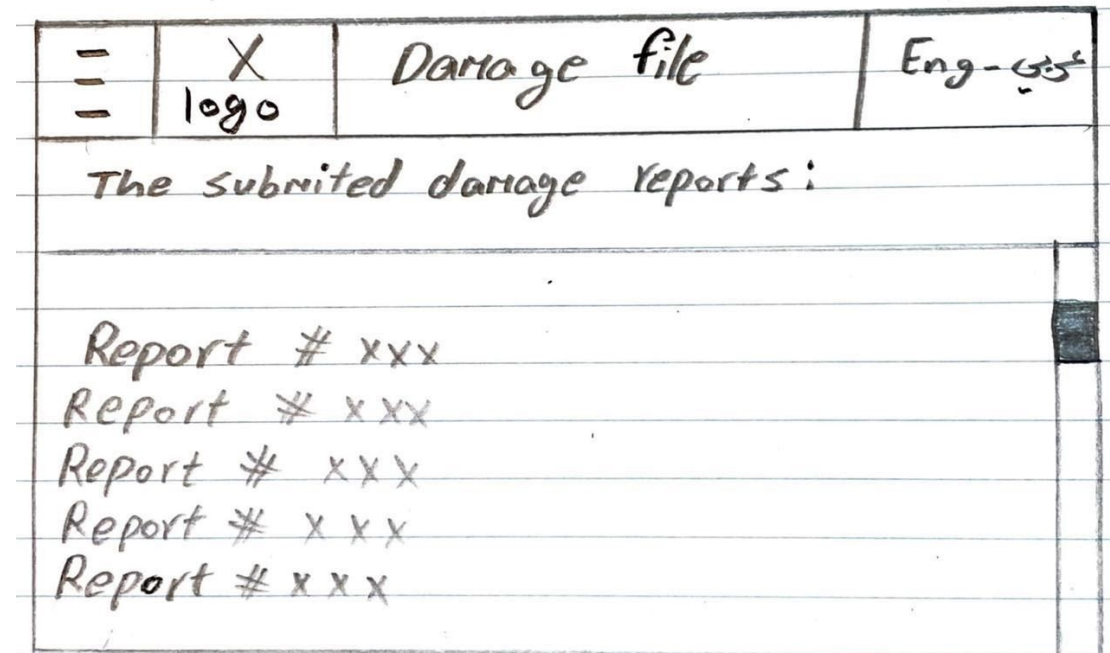 X logo
Damage file
Eng-عربي
The submited damage reports:
Report # xxx
Report # xxx
Report # xxx
Report # xxx
Report # xxx